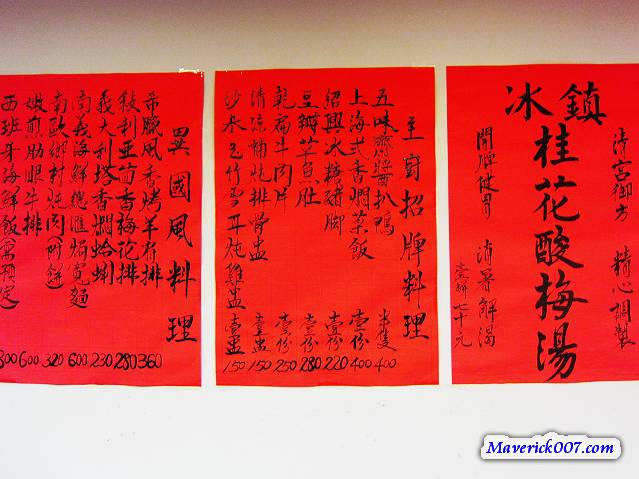 清宮御方 精心調製
冰鎮
桂花酸梅湯
開脾健胃 消暑解渴
壹斤七十元
主廚招牌料理
五味醬扒鴨 半隻 400
上海式香燜菜飯 壹份 400
紹興冰糖豬腳 壹份 220
豆瓣草魚肚 壹份 280
乾扁牛肉片 壹份 250
清涼補炖排骨盅 壹盅 150
沙參玉竹雪耳炖雞盅 壹盅 150
異國風料理
希臘風香烤羊肋排 360
敍利亞茴香梅花排 280
義大利塔香燜蛤蜊 230
南義海鮮總匯焗寬麵 600
南歐鄉村炖肉(附餅) 320
嫩煎肋眼牛排 600
西班牙海鮮飯(需預定) 800
Maverick007.com